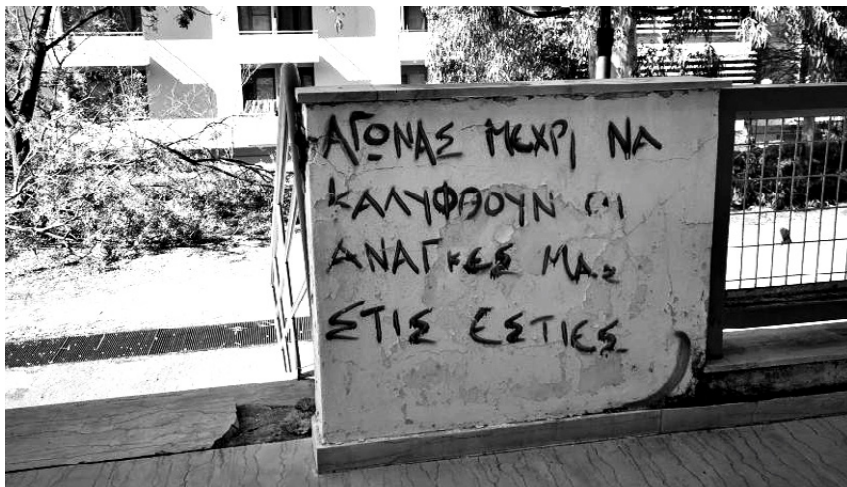 ΑΓΩΝΑΣ ΜΕΧΡΙ ΝΑ
ΚΑΛΥΦΘΟΥΝ ΟΙ
ΑΝΑΓΚΕΣ ΜΑΣ
ΣΤΙΣ ΕΣΤΙΕΣ